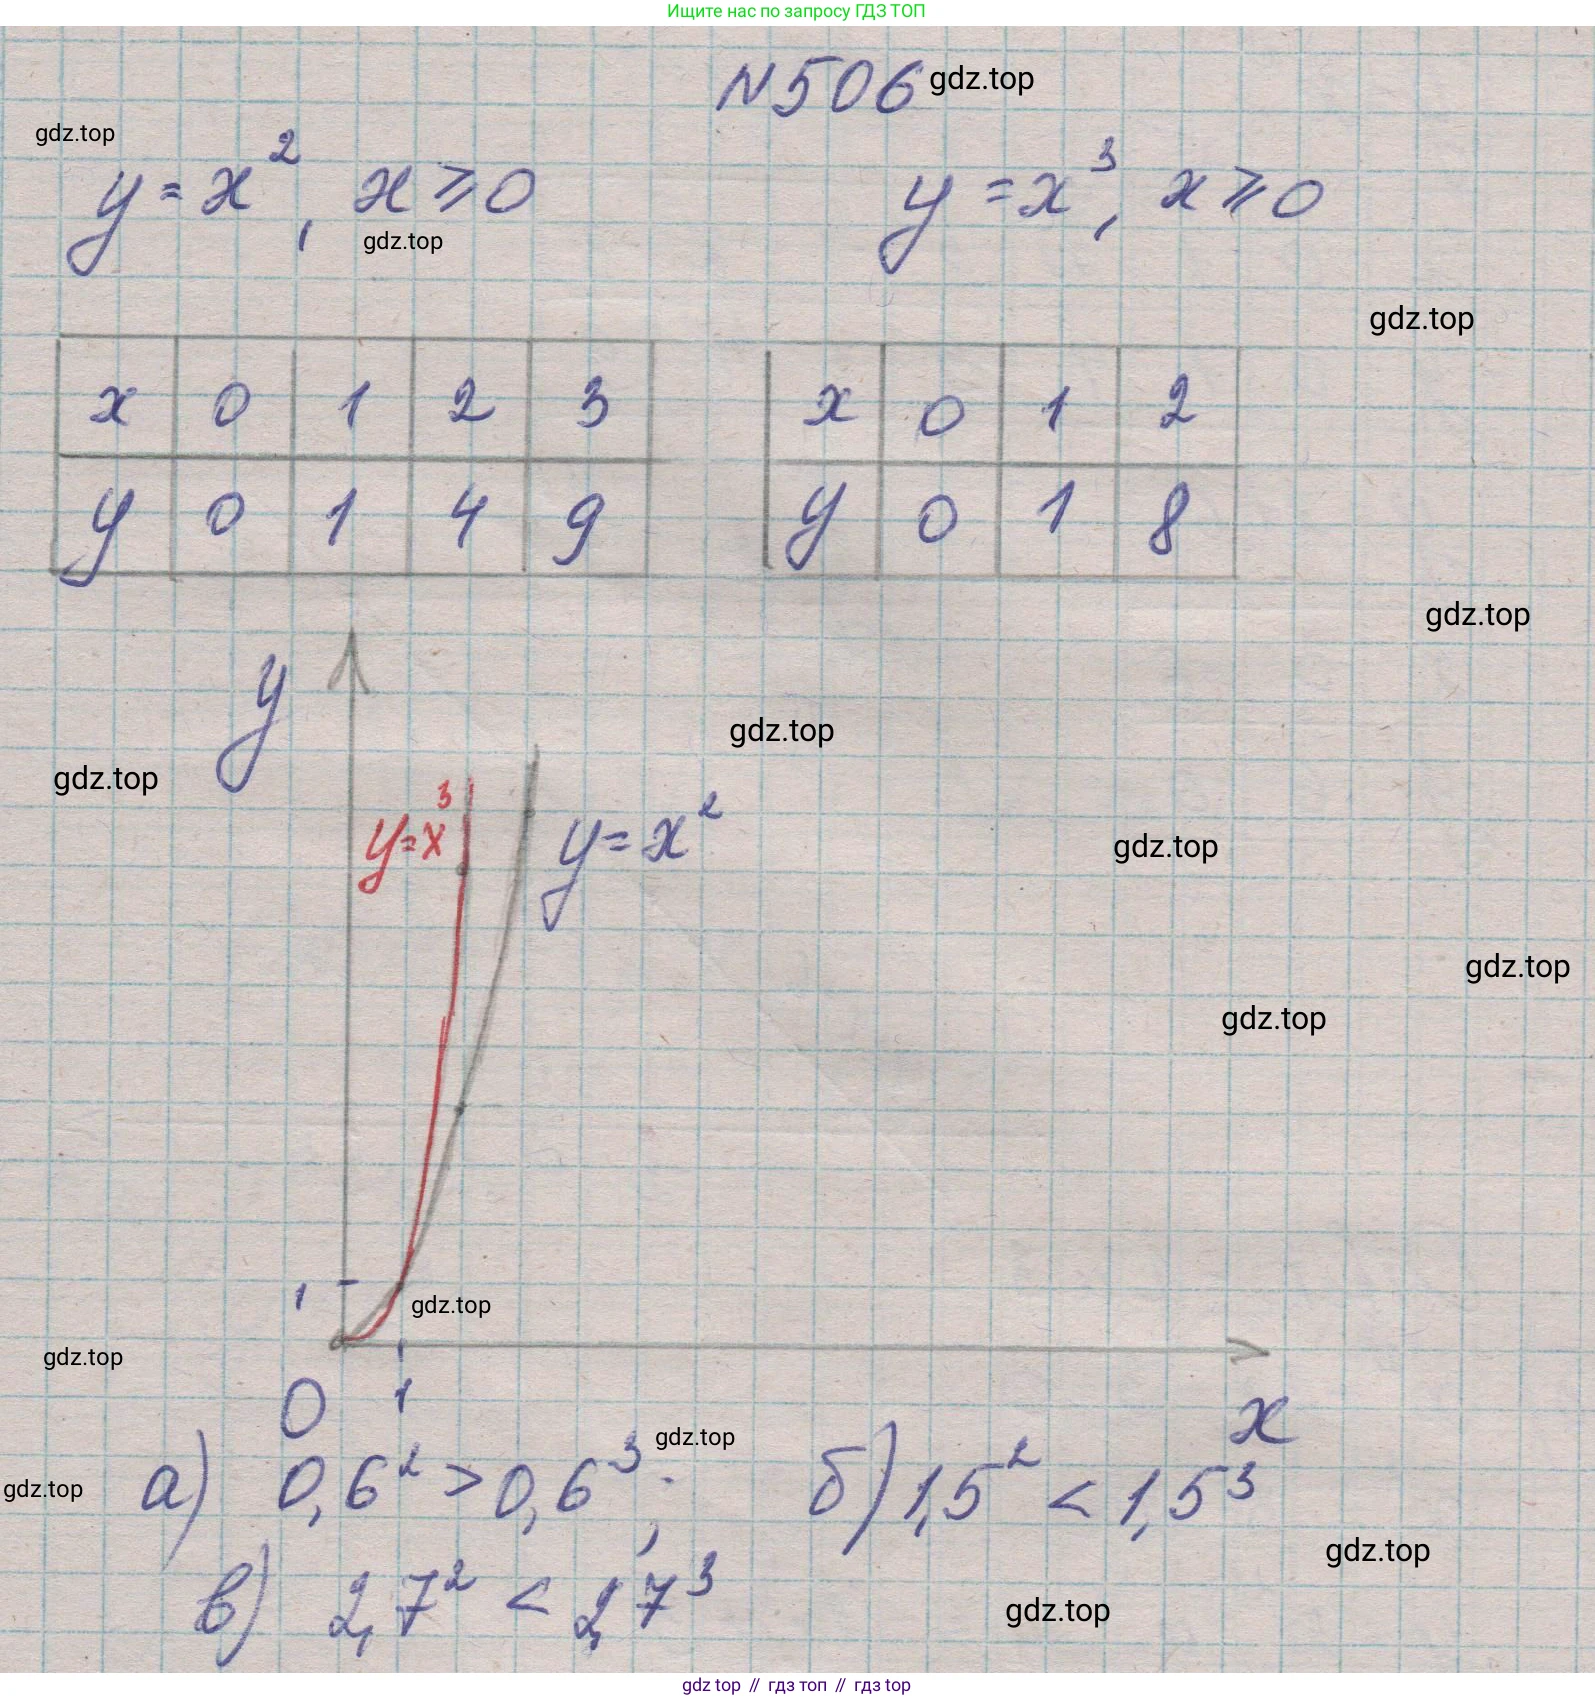 Ищите нас по запросу ГДЗ ТОП
N506 gdz.top
gdz.top
y = x², x ⩾ 0
y = x³, x ⩾ 0
gdz.top
gdz.top
x 0 1 2 3
y 0 1 4 9
x 0 1 2
y 0 1 8
gdz.top
y
gdz.top
gdz.top
y=x³
y = x²
gdz.top
gdz.top
gdz.top
1
gdz.top
gdz.top
0 1 x
gdz.top
а) 0,6² > 0,6³; б) 1,5² < 1,5³
gdz.top
gdz.top
в) 2,7² < 2,7³
gdz.top
gdz.top // гдз топ // гдз top